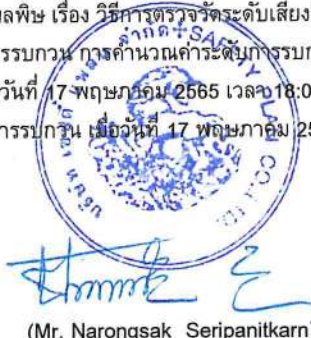 ลพิษ เรื่อง วิธีการตรวจวัดระดับเสียง
รรบกวน การคำนวณค่าระดับการรบก
วันที่ 17 พฤษภาคม 2565 เวลา 18:0
ารรบกวน เมื่อวันที่ 17 พฤษภาคม 25
SAFETY LAW CO.,LTD.
(Mr. Narongsak Seripanitkarn)